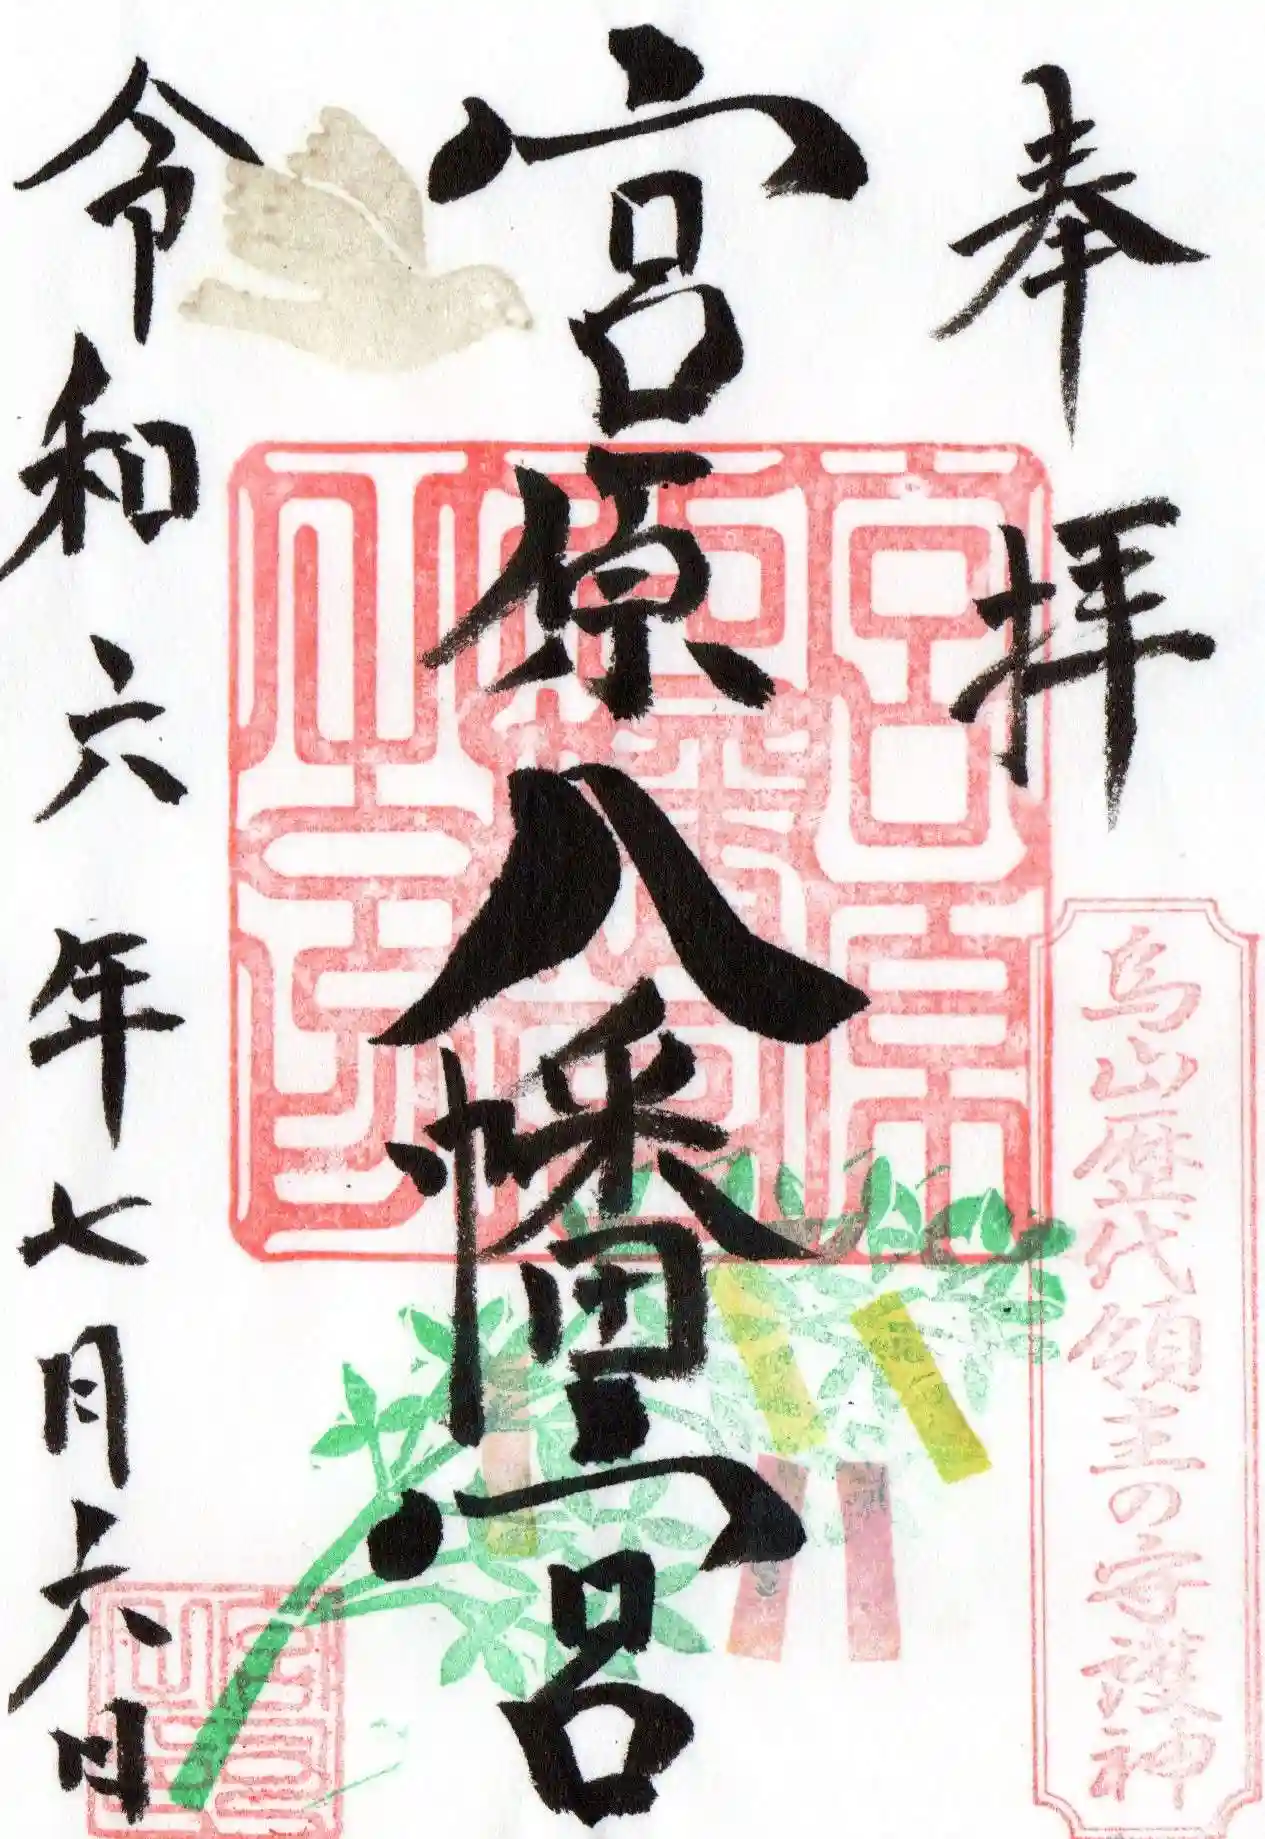 奉拝
烏山歴代領主の守護神
宮原八幡宮
令和六年七月六日